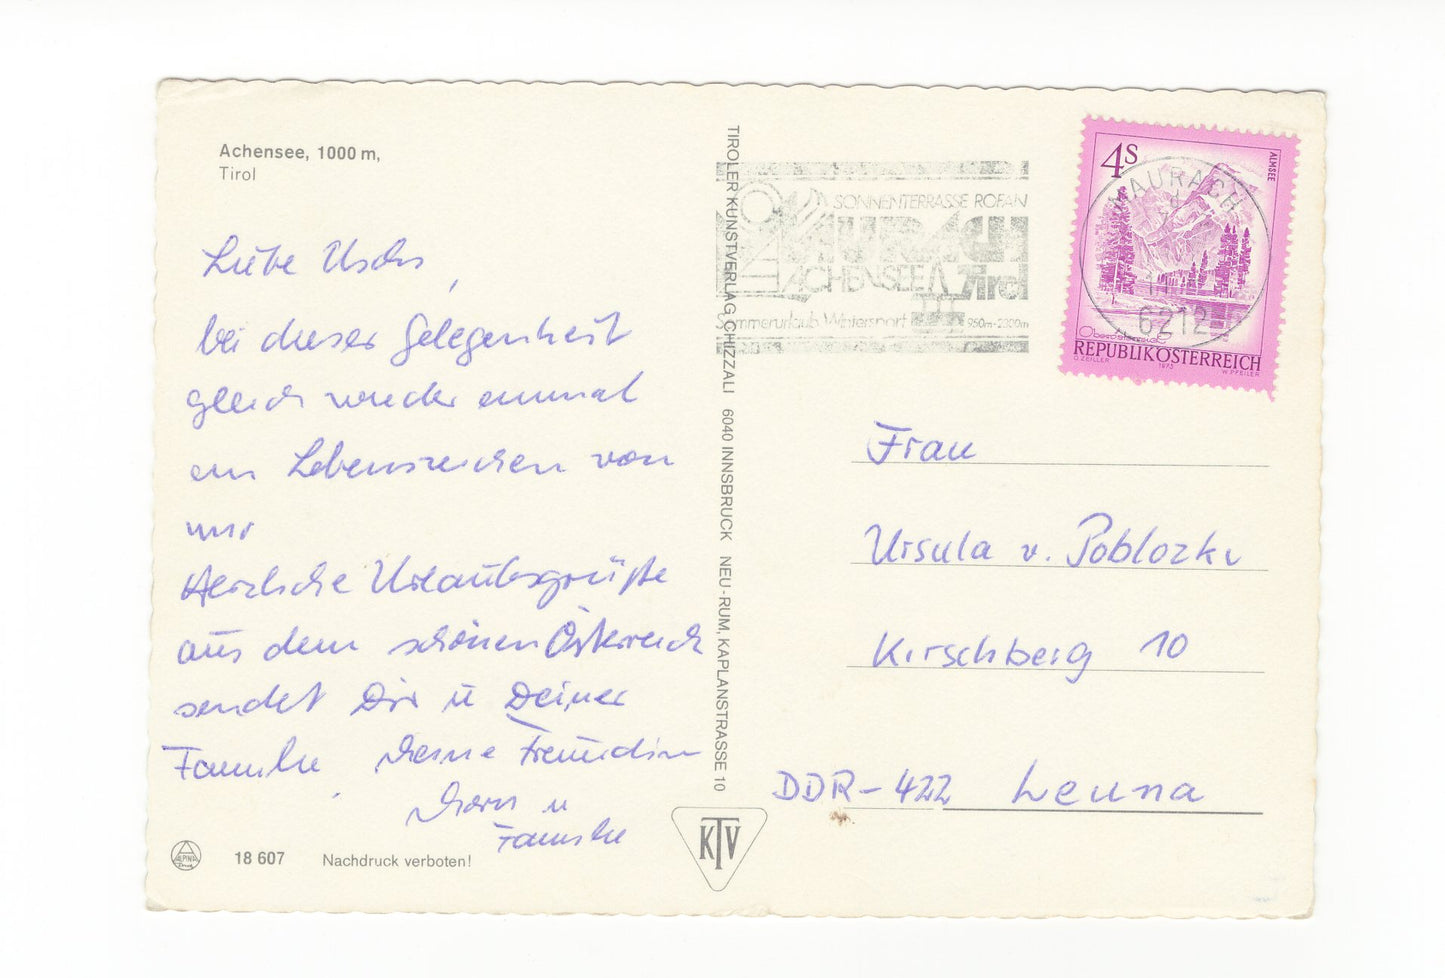 Achensee, 1000 m,
Tirol
Liebe Uschi,
bei dieser Gelegenheit
gleich wieder einmal
ein Lebenszeichen von
mir
Herzliche Urlaubsgrüße
aus dem schönen Österreich
sendet Dir u Deiner
Familie, Deine Freundin
u
Familie
18 607 Nachdruck verboten!
ALPINA
TIROLER KUNSTVERLAG CHIZZALI 6040 INNSBRUCK NEU-RUM, KAPLANSTRASSE 10
KTV
SONNENTERRASSE ROFAN
MAURACH
ACHENSEE Tirol
Sommerurlaub Wintersport 950m-2000m
4S
ALMSEE
MAURACH
6212
Oberösterreich
REPUBLIK ÖSTERREICH
O. ZEILLER 1975 W. PFEILER
Frau
Ursula v. Poblozki
Kirschberg 10
DDR-422 Leuna